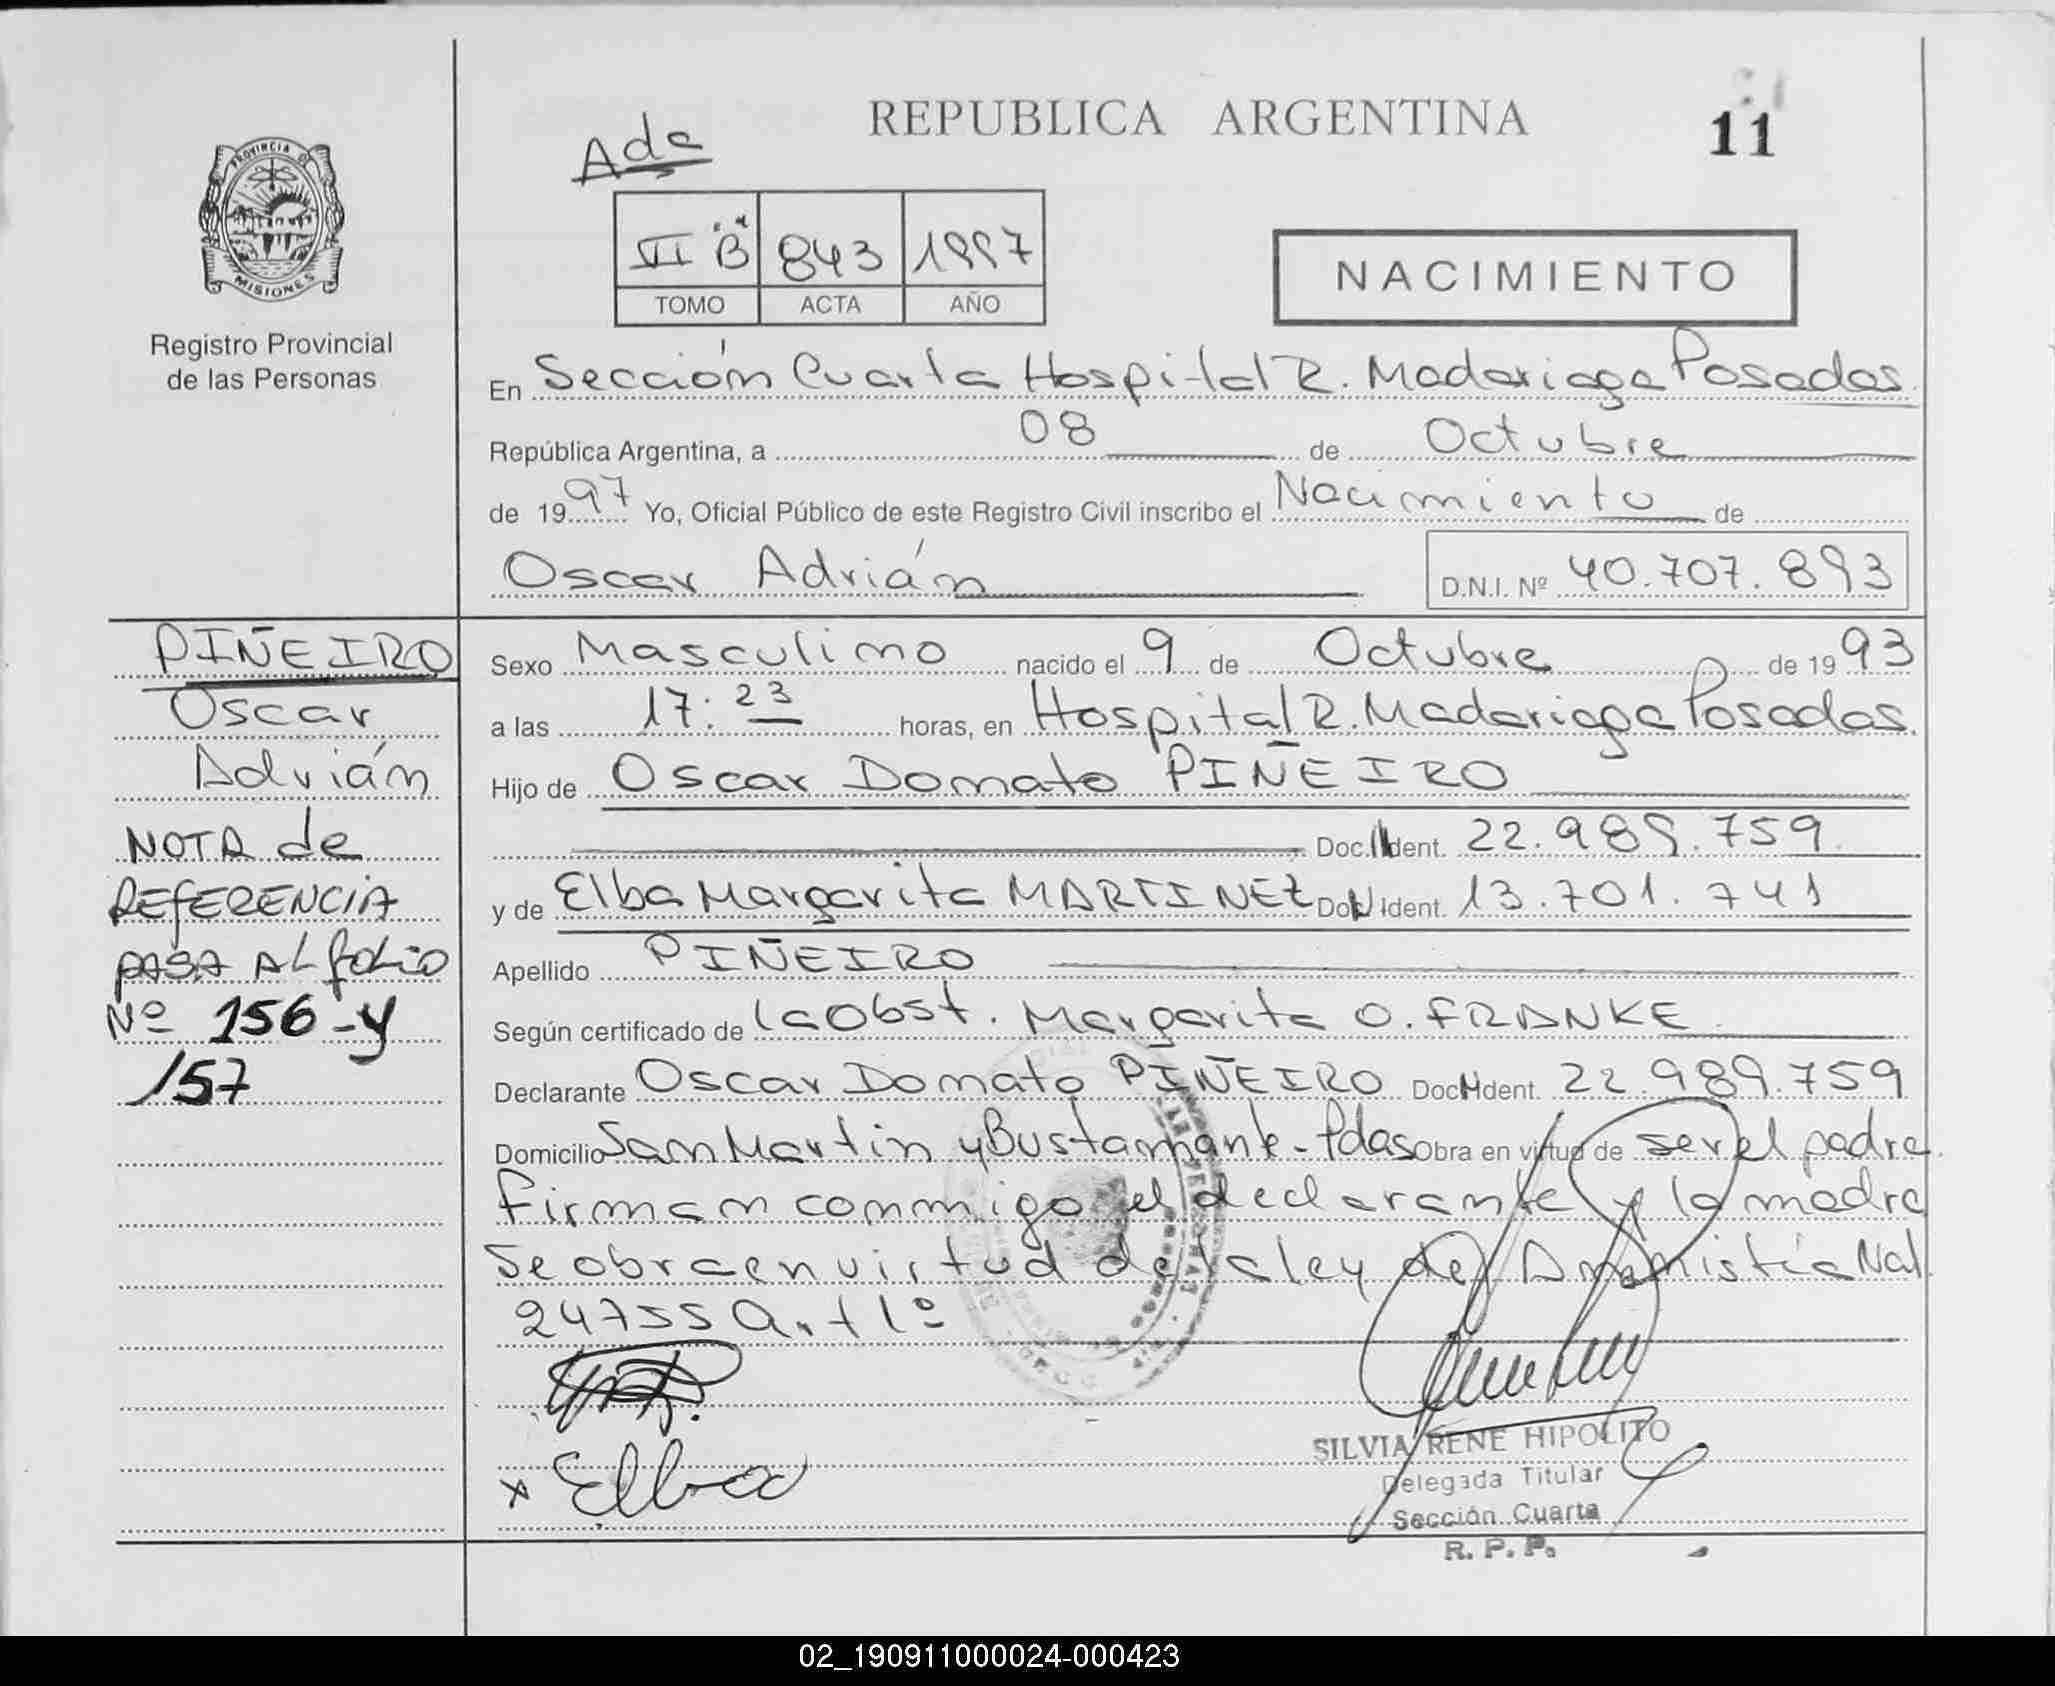 REPUBLICA ARGENTINA
11
PROVINCIA DE
MISIONES
Registro Provincial
de las Personas
III "B" 843 1997
TOMO ACTA AÑO
NACIMIENTO
En Sección Cuarta Hospital R. Madariaga Posadas.
República Argentina, a 08 de Octubre
de 1997 Yo, Oficial Público de este Registro Civil inscribo el Nacimiento de
Oscar Adrián D.N.I. Nº 40.707.893
PIÑEIRO
Oscar
Adrián
NOTA de
REFERENCIA
PASA AL folio
Nº 156-y
157
Sexo Masculino nacido el 9 de Octubre de 1993
a las 17:23 horas, en Hospital R. Madariaga Posadas.
Hijo de Oscar Donato PIÑEIRO
Doc. Ident. 22.989.759
y de Elba Margarita MARTINEZ Doc. Ident. 13.701.741
Apellido PIÑEIRO
Según certificado de la Obst. Margarita O. FRANKE
Declarante Oscar Donato PIÑEIRO Doc. Ident. 22.989.759
Domicilio San Martin y Bustamante - Pdas Obra en virtud de ser el padre
firman conmigo el declarante y la madre
Se obra en virtud de la ley de Amnistía Nal
24755 Art 1º
x Elba
SILVIA RENE HIPOLITO
Delegada Titular
Sección Cuarta
R. P. P.
02_190911000024-000423